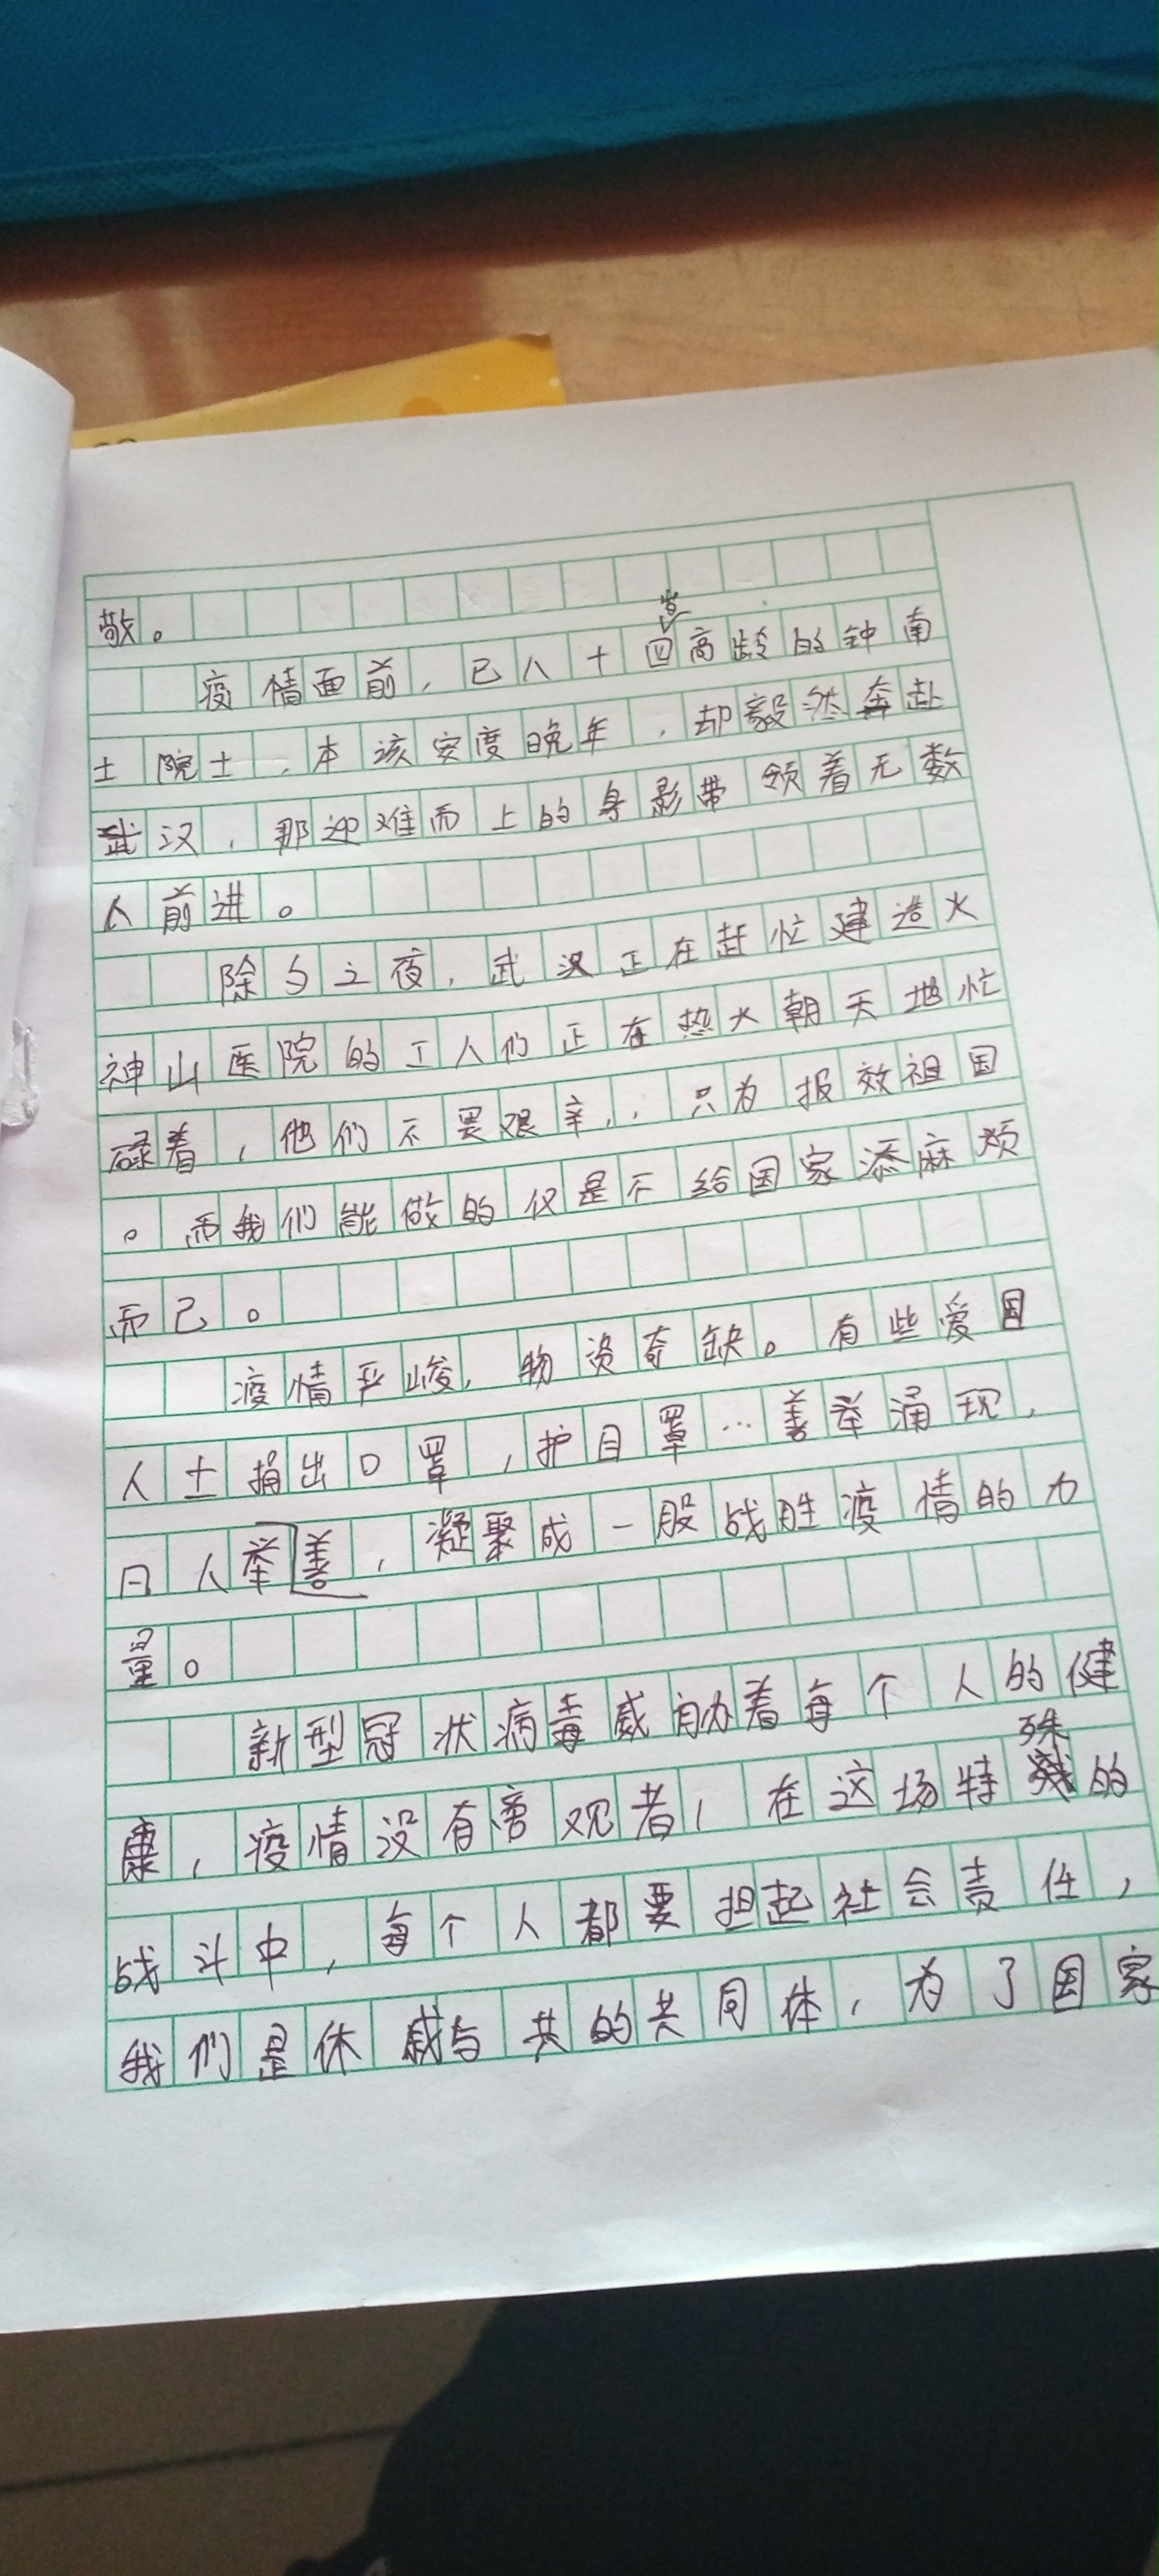 敬。
疫情面前，已八十四岁高龄的钟南
士院士，本该安度晚年，却毅然奔赴
武汉，那迎难而上的身影带领着无数
人前进。
除夕之夜，武汉正在赶忙建造火
神山医院的工人们正在热火朝天地忙
碌着，他们不畏艰辛，，只为报效祖国
。而我们能做的仅是不给国家添麻烦
而己。
疫情严峻，物资奇缺。有些爱国
人士捐出口罩，护目罩…善举涌现，
日人举善，凝聚成一股战胜疫情的力
量。
新型冠状病毒威胁着每个人的健
康，疫情没有旁观者，在这场特殊的
战斗中，每个人都要担起社会责任，
我们是休戚与共的共同体，为了国家